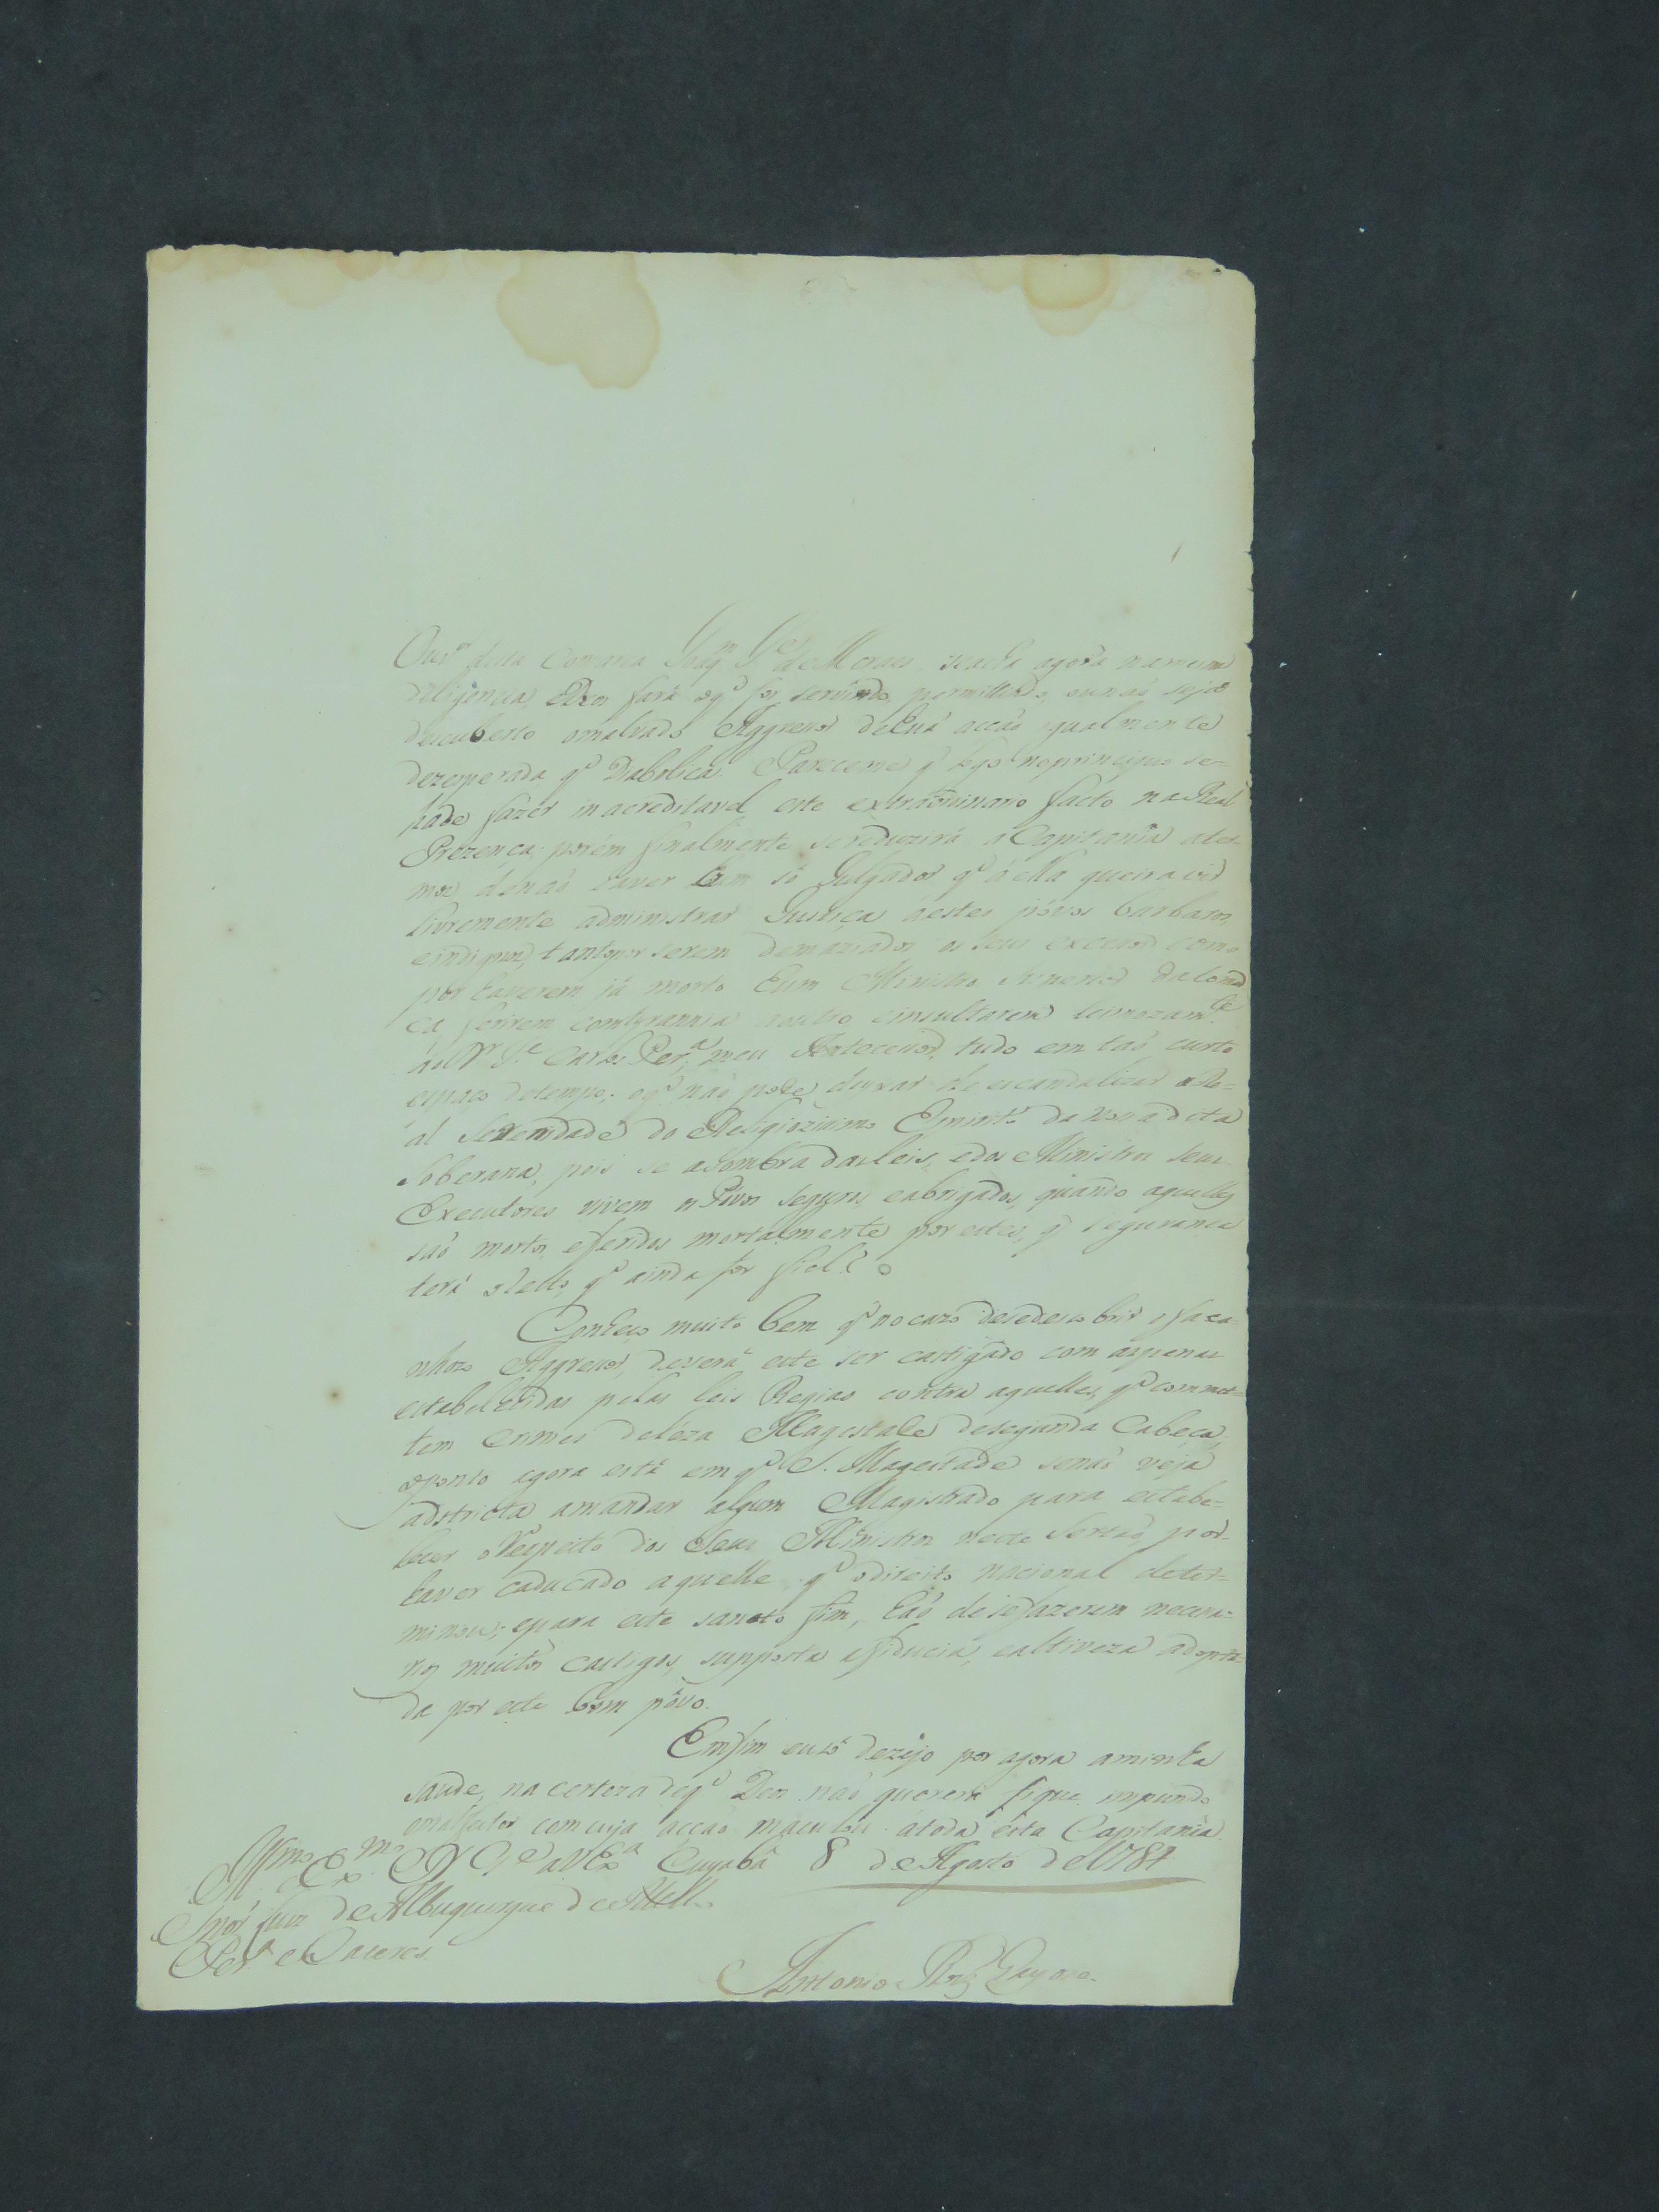 Ouv.or desta Comarca Joaq.m J.e de Moraes se acha agora na mesma
diligencia, e Deos fará o q.' for servido, permittindo, ou não seja
descuberto o malvado Aggressor de huã acção igualmente
dezesperada q.' Diabolica. Pareceme q.' logo no principio se-
hade fazer inacreditavel este extraordinario facto na Real
Prezença, porém finalmente se reduzirá a Capitania a ter-
mos de naõ haver hum só Julgador q.' á ella queira vir
livremente administrar Justiça a estes póvos barbaros,
e indignos, tanto por serem demaziados os seus excessos como
por haverem já morto hum Ministro
ca ferirem com tyrannia a outro e insultarem
ao D.r J.e Carlos Per.a meu Antecessor, tudo em taõ curto
espaço de tempo; o q.' naõ pode deixar de escandalizar a Re-
al Serenidade do Religiozissimo Espirito da nossa
Soberana, pois se a sombra das leis, e dos Ministros seus
Executores vivem os Póvos seguros, e abrigados, quando aquelles
saõ mortos, e feridos mortalmente por estes, q.' segurança
terá q.' ainda for fiel?
Conheço muito bem q.' no cazo de se descobrir o faça-
nhozo Aggressor, deverá este ser castigado com as penas
estabellecidas pelas leis Regias contra aquelles, q.' commet-
tem crimes de léza Magestade de segunda Cabeça;
o ponto agora está em q.' S. Magestade senaõ veja
adstricta a mandar algum Magistrado para estabe-
lecer o Respeito dos Seus Ministros neste Sertaõ, por-
haver caducado aquelle q.' o direito nacional deter-
minou; e para este sancto fim, haõ de se fazerem necessa-
rios muitos castigos, supposta a fiducia, e altiveza adopta-
da por este bom póvo.
Emfim eu só dezejo por agora a minha
saude, na certeza de q.' Deos naõ quererá fique impundo
o malfeitor com cuja acçaõ maculou a toda esta Capitania.
D.s G.e a V Ex.a Cuyabá 8 de Agosto de 1784
Ill.mo e Ex.mo
Snõr Luiz de Albuquerque de Mello
Per.a e Caceres
Antonio Roiz Gayozo